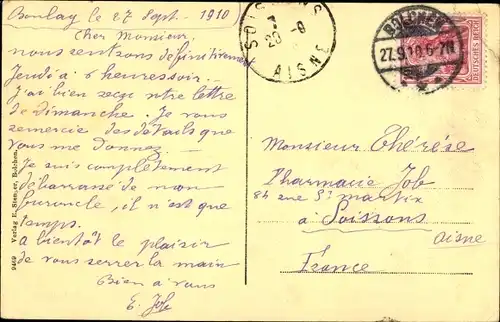 Boulay le 27 Sept. 1910)
Cher Monsieur,
nous rentrons définitivement
Jeudi à 6 heures soir.
J'ai bien reçu votre lettre
de dimanche. Je vous
remercie des détails que
vous me donnez.
Je suis complètement
débarrassé de mon
furoncle, il n'est que
temps.
A bientôt le plaisir
de vous serrer la main
Bien à vous
E. Job
9469 Verlag E. Stenger, Bolchen.
SOISSONS
20-9
AISNE
BOLCHEN
27.9.10.6-7N
DEUTSCHES REICH
Monsieur Thérèse
Pharmacie Job
84 rue St Martin
à Soissons
Aisne
France